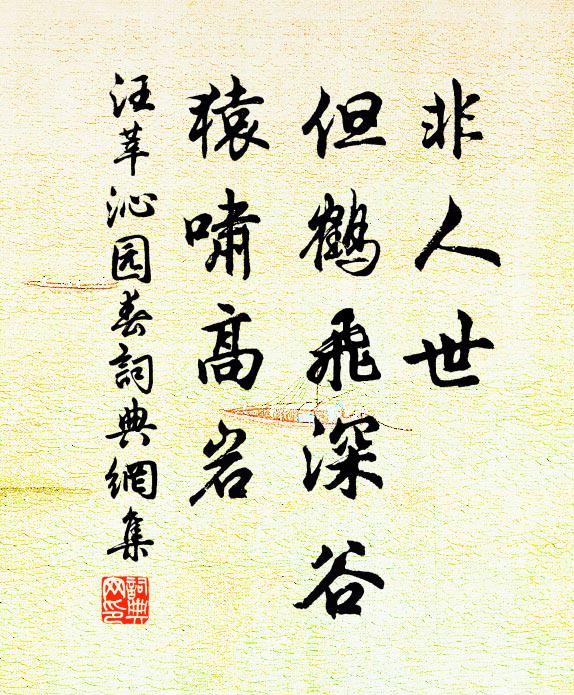 非人世
但鹤飛深谷
猿嘯高岩
汪莘沁园春詞典網集
詞典
网印